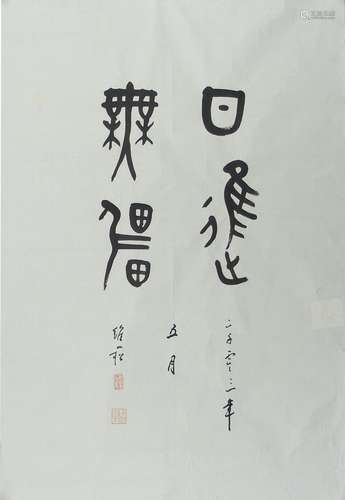 日進
無疆
二千零三年
五月